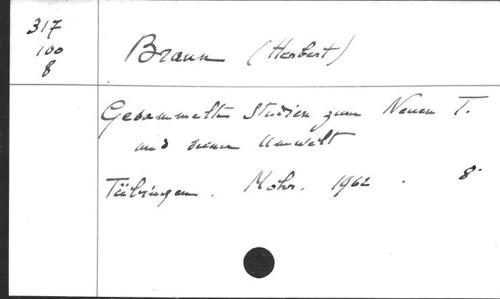 317
100
8
Braun (Herbert)
Gesammelte Studien zum Neuen T.
und seiner Umwelt
Tübingen. Mohr. 1962. 8°